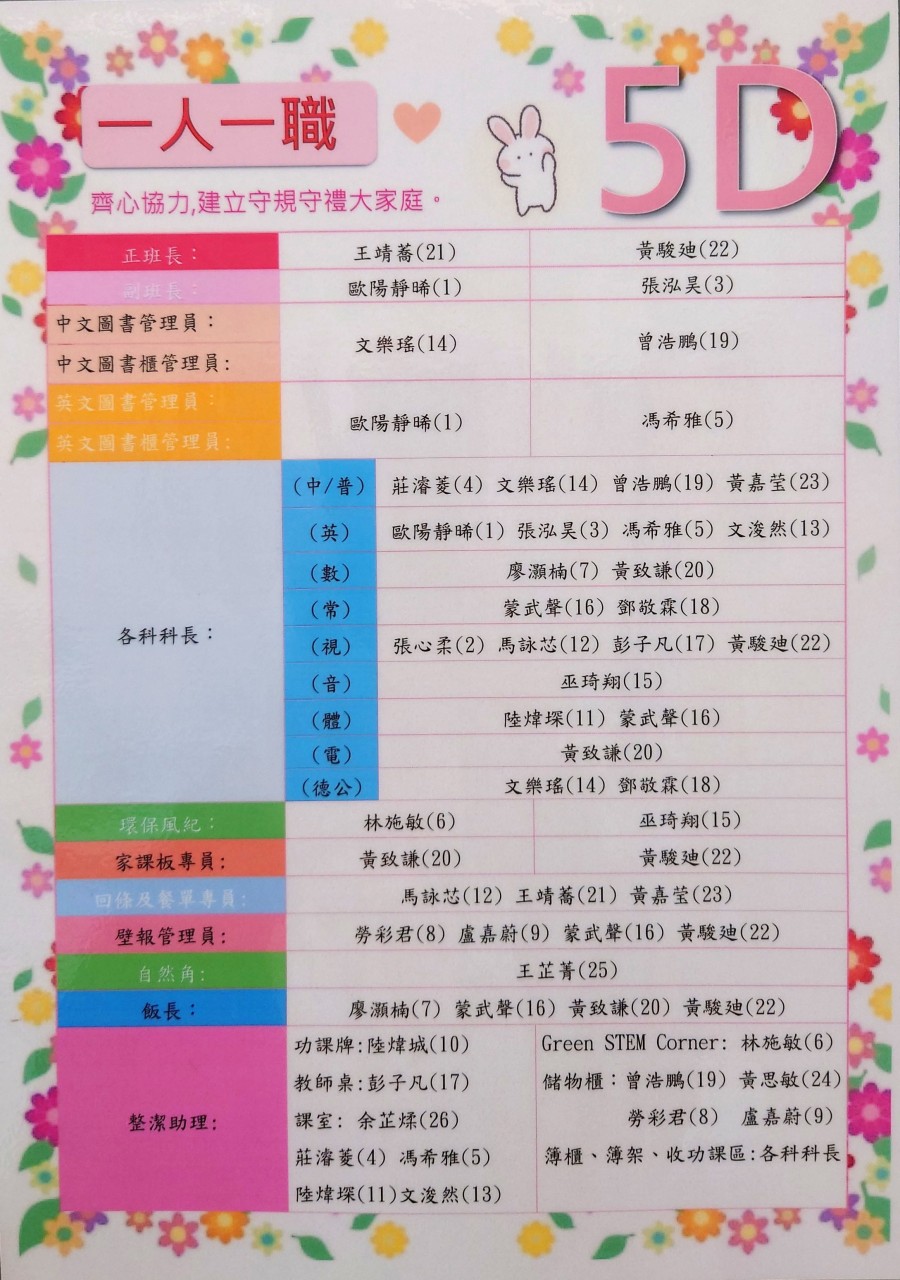 一人一職
5D
齊心協力,建立守規守禮大家庭。
正班長： 王靖蕎(21) 黃駿廸(22)
副班長： 歐陽靜晞(1) 張泓昊(3)
中文圖書管理員：
中文圖書櫃管理員: 文樂瑤(14) 曾浩鵬(19)
英文圖書管理員：
英文圖書櫃管理員: 歐陽靜晞(1) 馮希雅(5)
各科科長：
(中/普) 莊濬菱(4) 文樂瑤(14) 曾浩鵬(19) 黃嘉莹(23)
(英) 歐陽靜晞(1) 張泓昊(3) 馮希雅(5) 文浚然(13)
(數) 廖灝楠(7) 黃致謙(20)
(常) 蒙武聲(16) 鄧敬霖(18)
(視) 張心柔(2) 馬詠芯(12) 彭子凡(17) 黃駿廸(22)
(音) 巫琦翔(15)
(體) 陸煒堔(11) 蒙武聲(16)
(電) 黃致謙(20)
(德公) 文樂瑤(14) 鄧敬霖(18)
環保風紀： 林施敏(6) 巫琦翔(15)
家課板專員: 黃致謙(20) 黃駿廸(22)
回條及餐單專員: 馬詠芯(12) 王靖蕎(21) 黃嘉莹(23)
壁報管理員: 勞彩君(8) 盧嘉蔚(9) 蒙武聲(16) 黃駿廸(22)
自然角: 王芷菁(25)
飯長： 廖灝楠(7) 蒙武聲(16) 黃致謙(20) 黃駿廸(22)
整潔助理:
功課牌:陸煒城(10)
教師桌:彭子凡(17)
課室: 余芷煣(26)
莊濬菱(4) 馮希雅(5)
陸煒堔(11)文浚然(13)
Green STEM Corner: 林施敏(6)
儲物櫃：曾浩鵬(19) 黃思敏(24)
勞彩君(8) 盧嘉蔚(9)
簿櫃、簿架、收功課區:各科科長